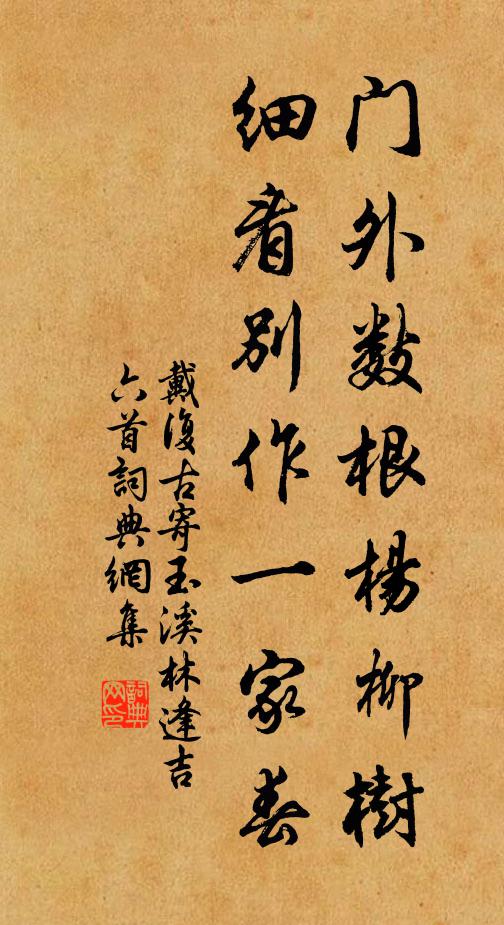 门外数根杨柳樹
细看别作一家春
戴復古寄玉溪林逢吉
六首詞典網集
詞典网印